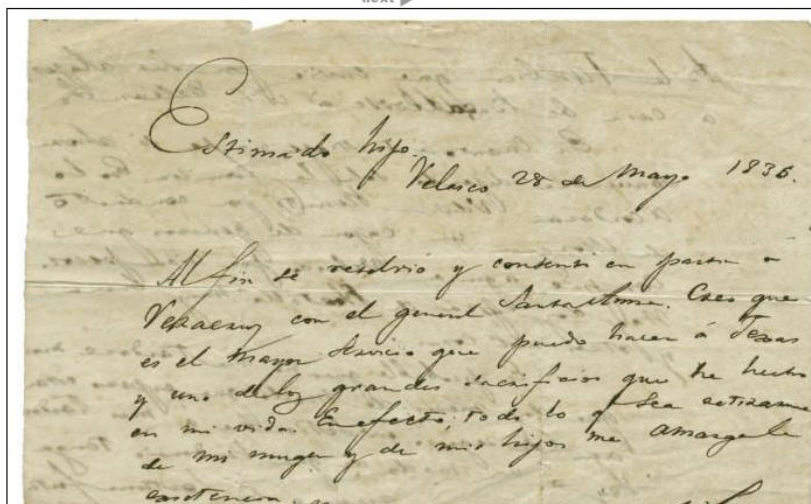 next
Estimado hijo.
Velasco 28 de Mayo 1836.
Al fin se resolvió y consentí en pasar a
Veracruz con el general Santa Anna. Creo que
es el mayor servicio que puedo hacer á Texas
y uno de los grandes sacrificios que he hecho
en mi vida. En efecto, todo lo q sea retirarme
de mi muger y de mis hijos me amarga la